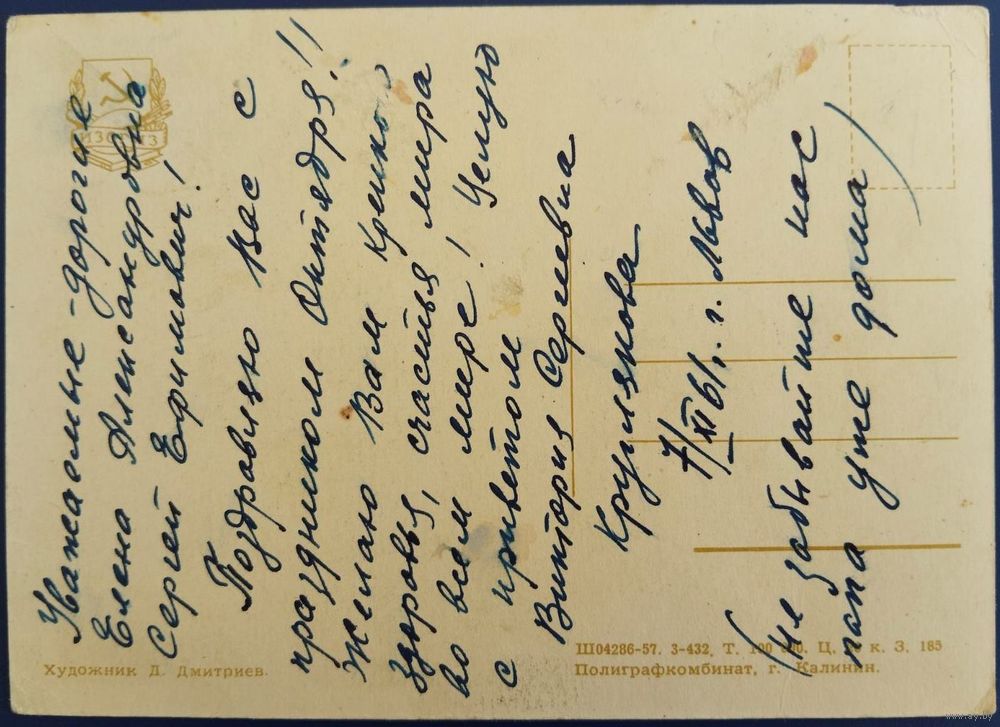 Уважаемые - дорогие
Елена Александровна
Сергей Ефимович!
Поздравляю Вас с
праздником Октября!!
Желаю Вам крепкого
здоровья, счастья мира
во всем мире! Целую
с приветом
Виктория Сергеевна
Круглякова
7/XI 61 г. г. Львов
(Не забывайте нас
папа уже дома)
ИЗОГИЗ
Художник Д. Дмитриев.
Ш04286-57. З-432. Т. 100 000. Ц. к. З. 185
Полиграфкомбинат, г. Калинин.
www.ay.by